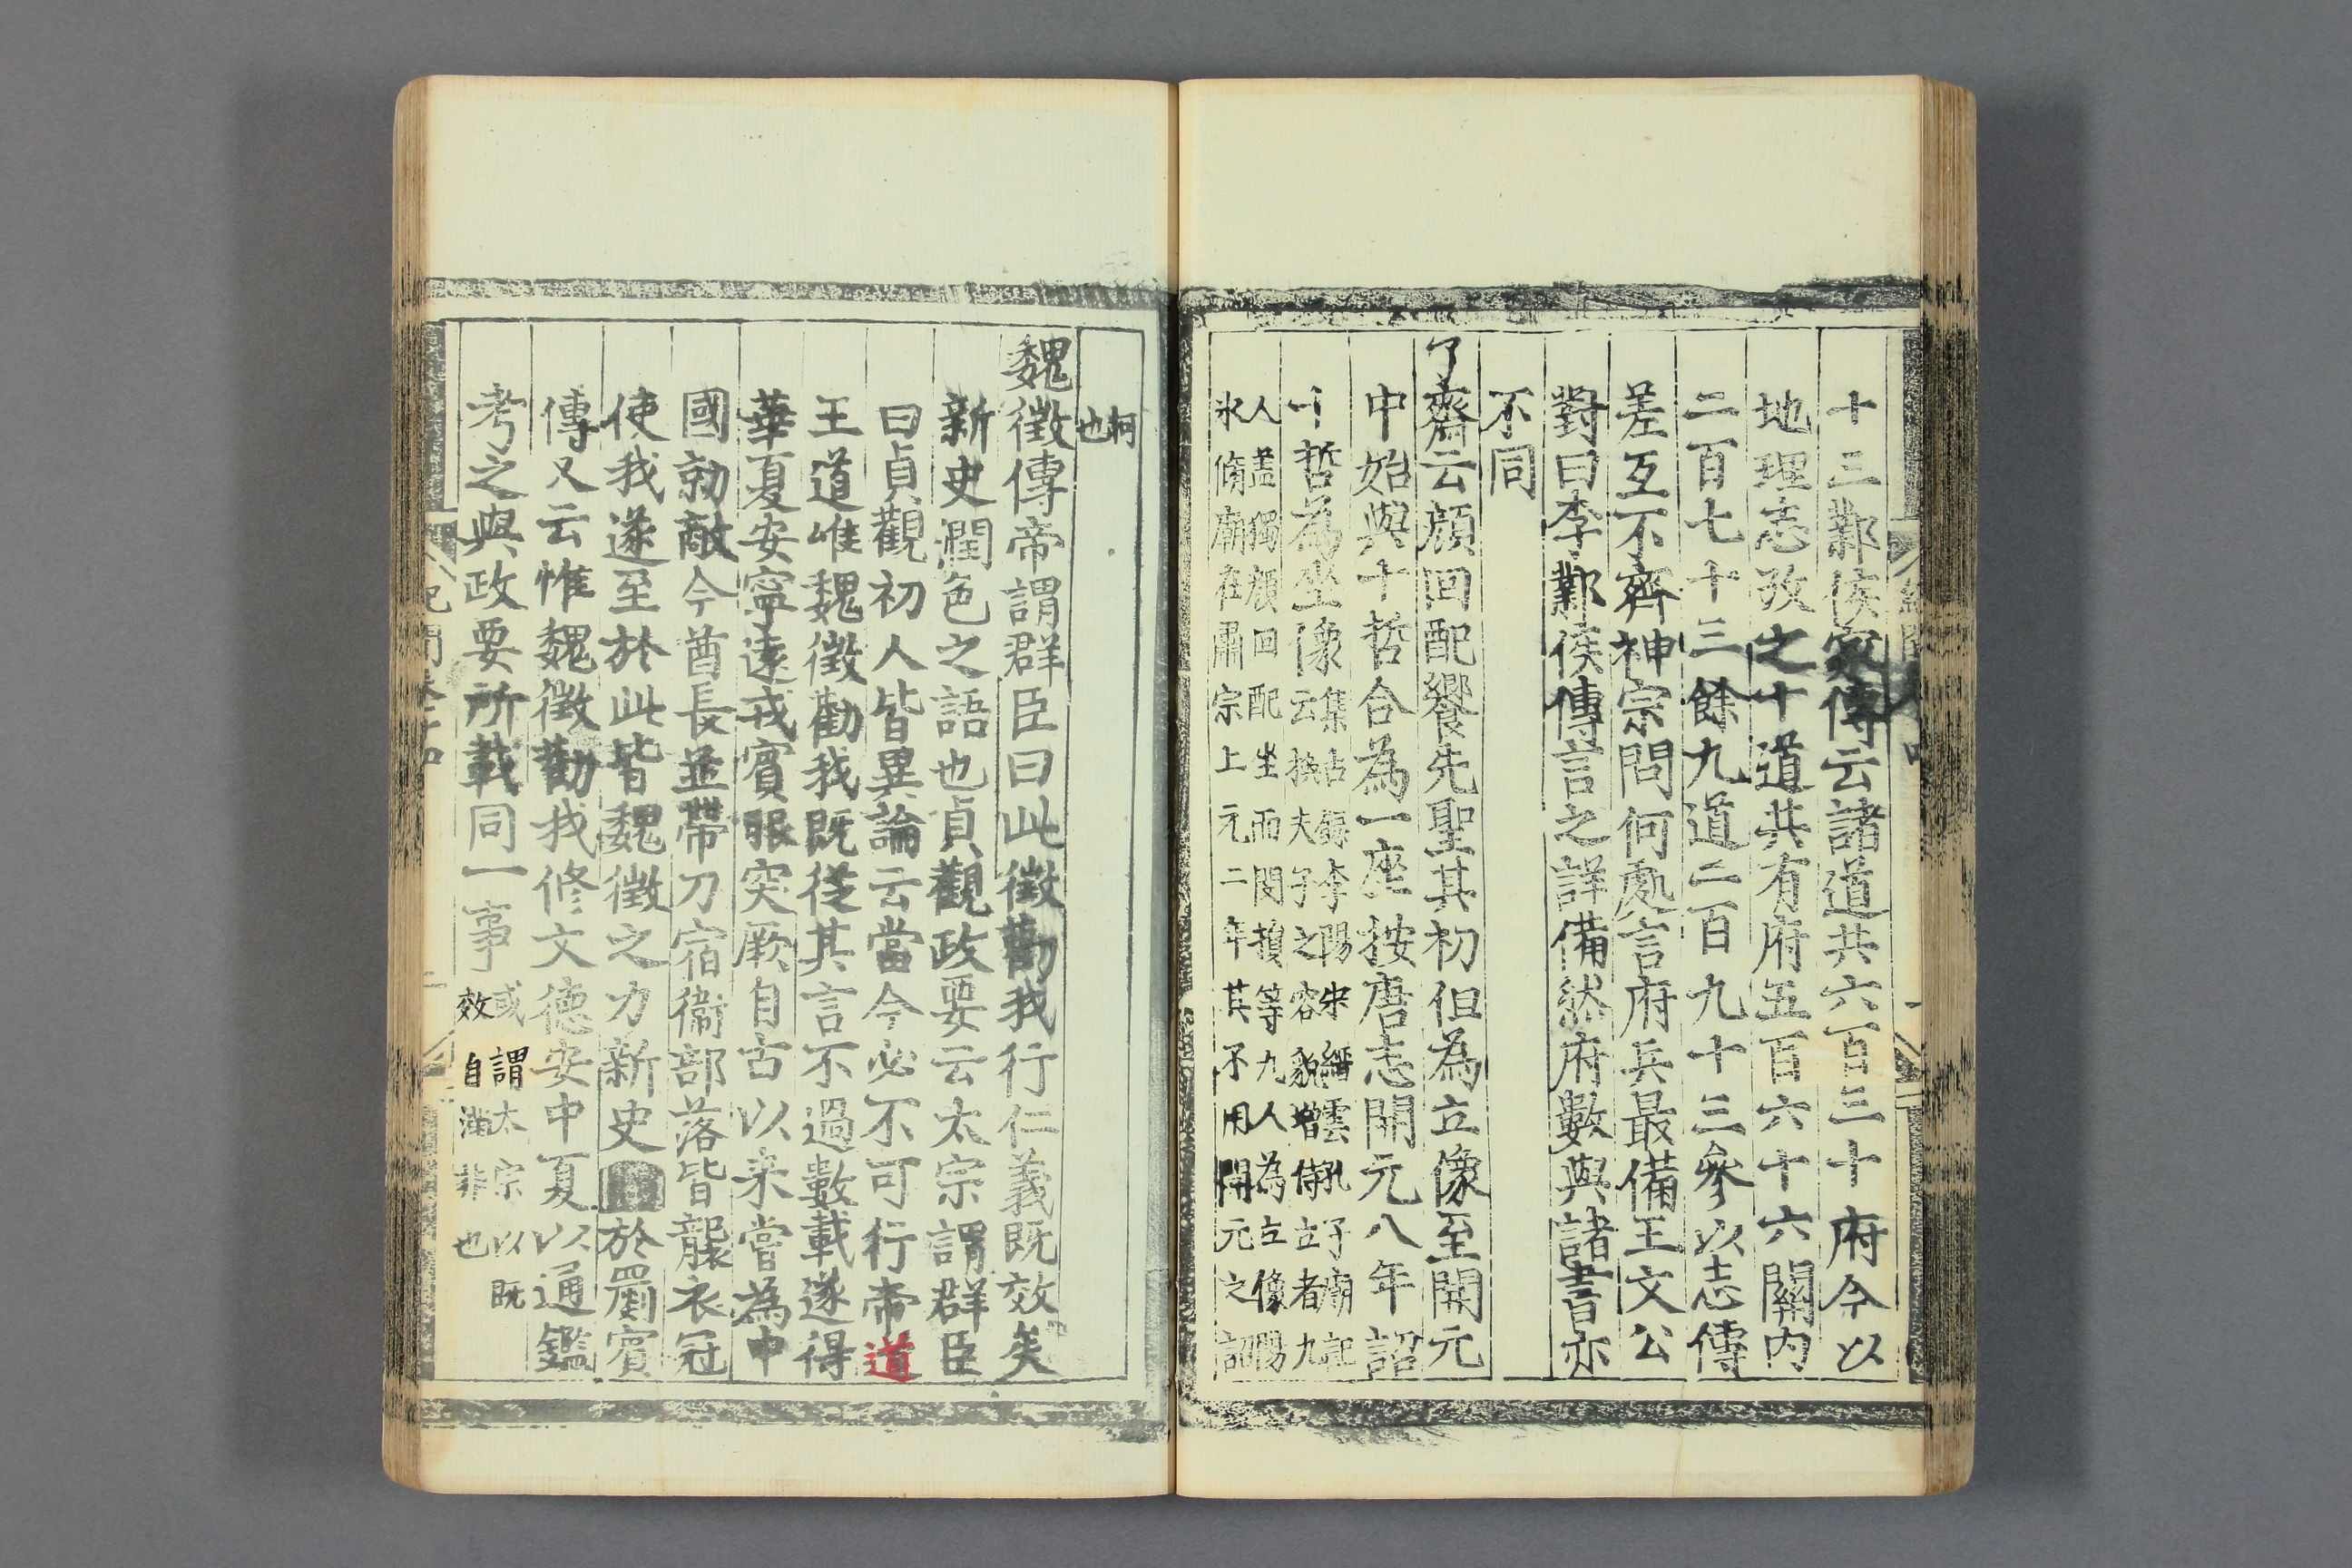 十三鄴侯家傳云諸道共六百三十府今以
地理志攷之十道共有府五百六十六關內
二百七十三餘九道二百九十三參以志傳
差互不齊神宗問何處言府兵最備王文公
對曰李鄴侯傳言之詳備然府數與諸書亦
不同
了齋云顔回配饗先聖其初但為立像至開元
中始與十哲合為一座按唐志開元八年詔
十哲為坐像
集古錄李陽氷縉雲孔子廟記
云換夫子之容貌增侍立者九
人盖獨顔回配坐而閔損等九人為立像陽
氷脩廟在肅宗上元二年其不用開元之詔
何
也
魏徵傳帝謂群臣曰此徵勸我行仁義既效矣
新史潤色之語也貞觀政要云太宗謂群臣
曰貞觀初人皆異論云當今必不可行帝道
王道唯魏徵勸我既從其言不過數載遂得
華夏安寧遠戎賓服突厥自古以来嘗為中
國勍敵今酋長並帶刀宿衞部落皆襲衣冠
使我遂至於此皆魏徵之力新史於罽賓
傳又云惟魏徵勸我修文德安中夏以通鑑
考之與政要所載同一事
或謂太宗以既
效自滿非也